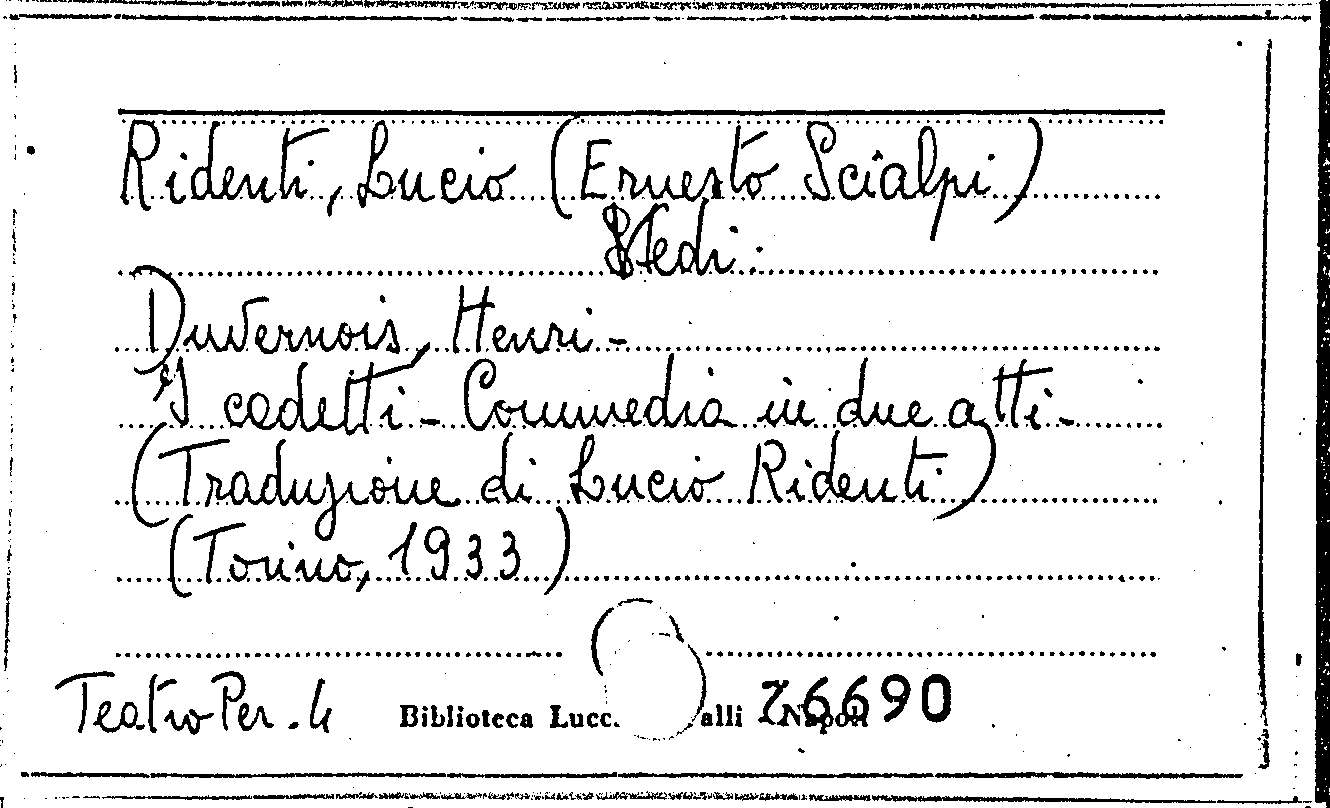 Ridenti, Lucio (Ernesto Scialpi)
Vedi:
Duvernois, Henri -
I cadetti - Commedia in due atti -
(Traduzione di Lucio Ridenti)
(Torino, 1933)
Teatro Per. 4 Biblioteca Lucc. alli - Napoli 76690